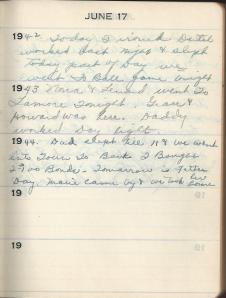 JUNE 17
1942 Today I ironed
worked last night & slept
today part of Day we
went to Ball Game tonight
1943 Nora & Lenard went to
Tonight.
Howard was here. Daddy
worked Day light.
1944. Dad slept till 11 & we went
into Town to Bank & Bought
2 Bonds. Tomorrow is Father
Day. Marie came by & we took her
home
19
19